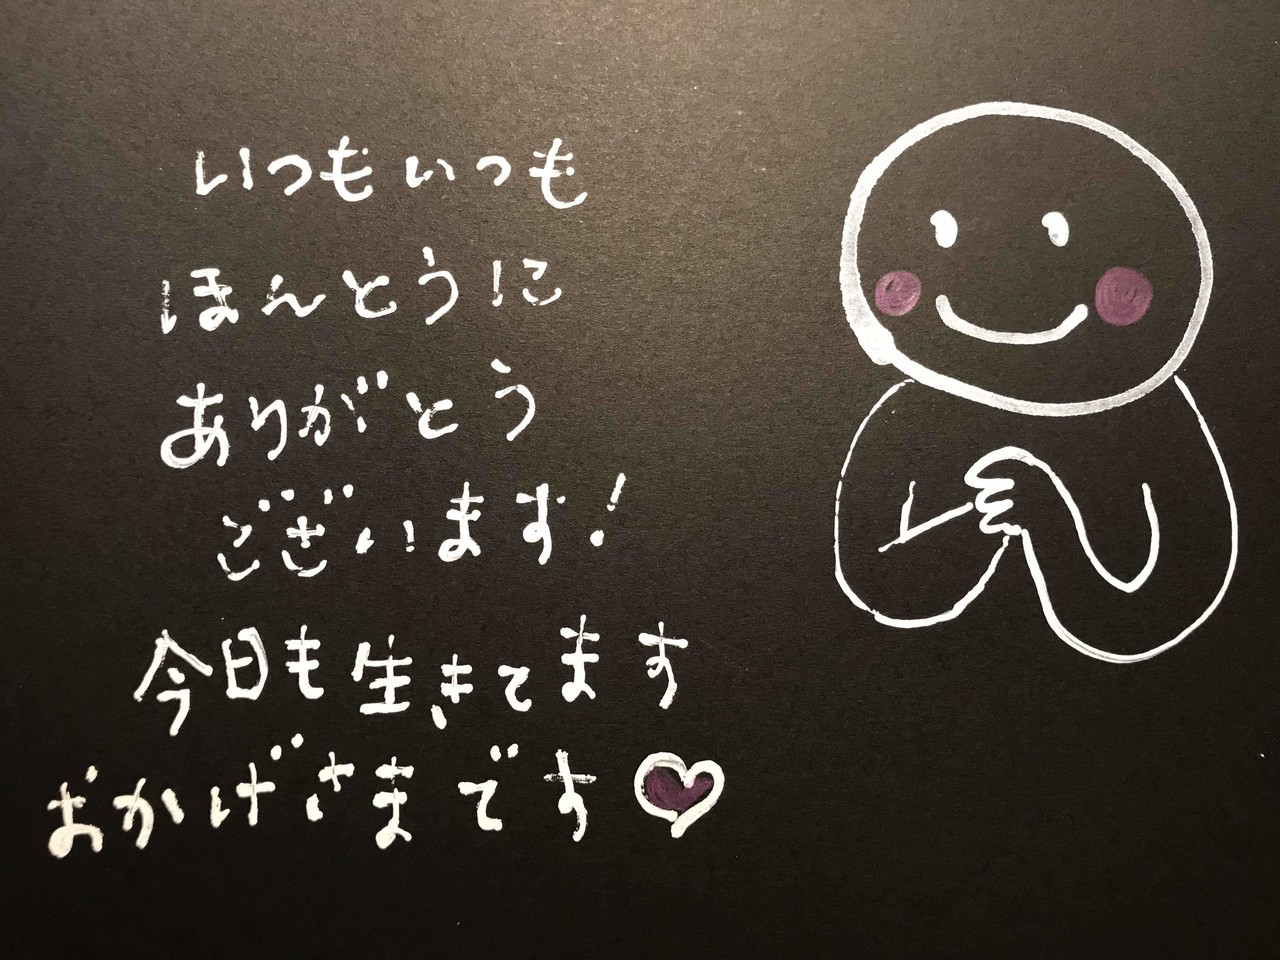 いつもいつも
ほんとうに
ありがとう
ございます!
今日も生きてます
おかげさまです♥